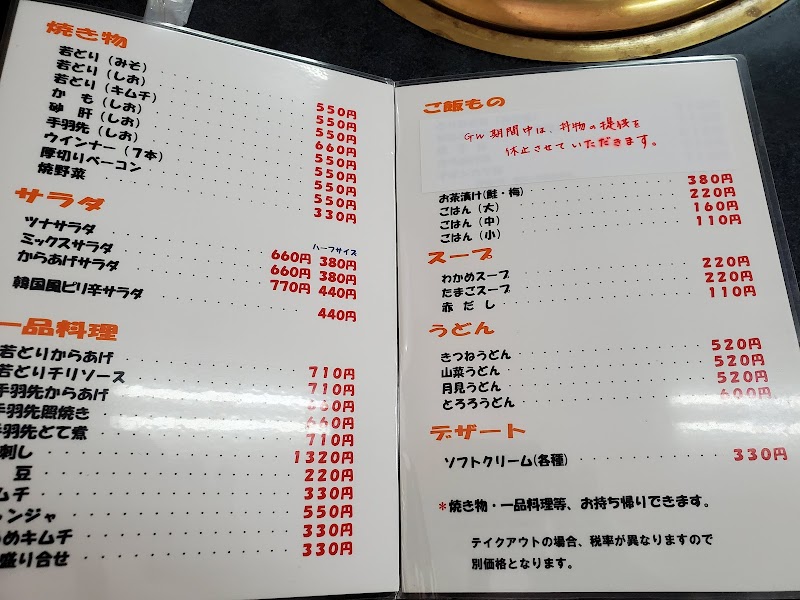 焼き物
若どり(みそ) 550円
若どり(しお) 550円
若どり(キムチ) 550円
か も(しお) 660円
砂 肝(しお) 550円
手羽先(しお) 550円
ウインナー(7本) 550円
厚切りベーコン 550円
焼野菜 330円
サラダ
ハーフサイズ
ツナサラダ 660円 380円
ミックスサラダ 660円 380円
からあげサラダ 770円 440円
韓国風ピリ辛サラダ 440円
一品料理
若どりからあげ 710円
若どりチリソース 710円
手羽先からあげ 660円
手羽先照焼き 660円
手羽先どて煮 710円
刺し 1320円
豆 220円
ムチ 330円
ャンジャ 550円
めキムチ 330円
盛り合せ 330円
ご飯もの
GW期間中は、丼物の提供を
休止させていただきます。
お茶漬け(鮭・梅) 380円
ごはん(大) 220円
ごはん(中) 160円
ごはん(小) 110円
スープ
わかめスープ 220円
たまごスープ 220円
赤だし 110円
うどん
きつねうどん 520円
山菜うどん 520円
月見うどん 520円
とろろうどん 600円
デザート
ソフトクリーム(各種) 330円
*焼き物・一品料理等、お持ち帰りできます。
テイクアウトの場合、税率が異なりますので
別価格となります。